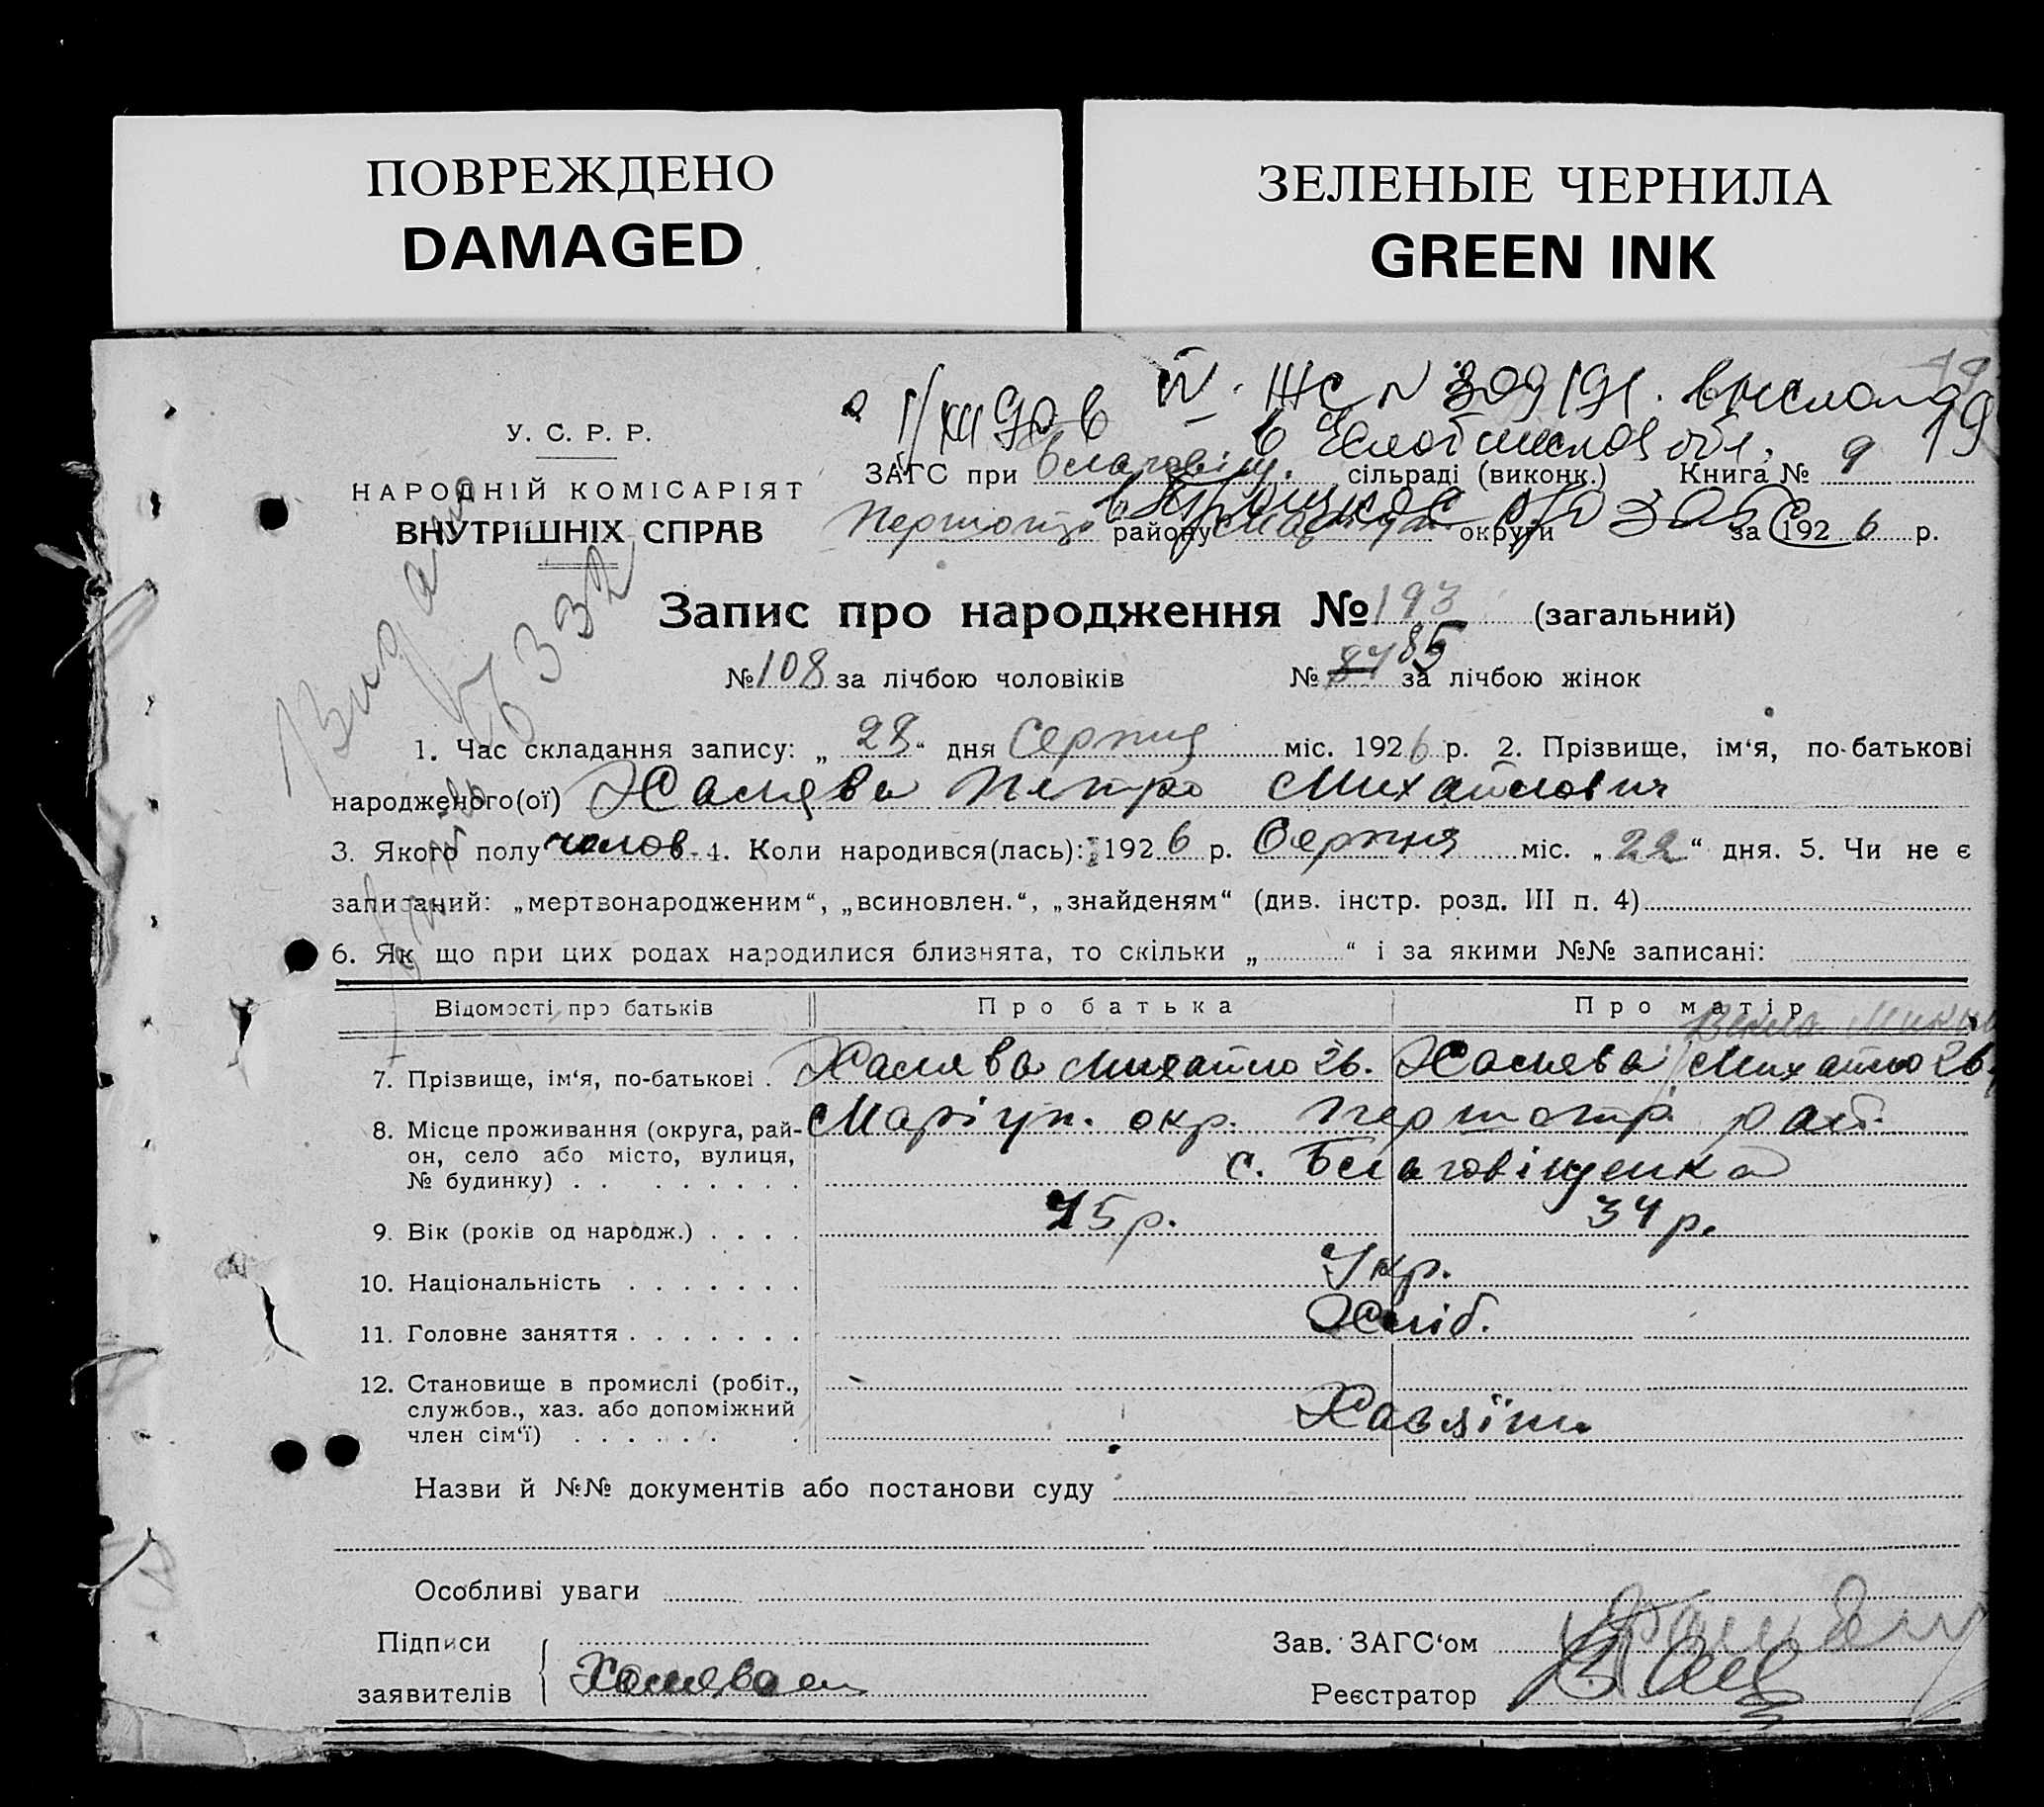 ПОВРЕЖДЕНО
DAMAGED
ЗЕЛЕНЫЕ ЧЕРНИЛА
GREEN INK
19
У. С. Р. Р.
НАРОДНІЙ КОМІСАРІЯТ
ВНУТРІШНІХ СПРАВ
ЗАГС при Благовіщ. сільраді (виконк.) Книга № 9
району округи за 1926 р.
Запис про народження № 193 (загальний)
№ 108 за лічбою чоловіків № 84 85 за лічбою жінок
1. Час складання запису: „28“ дня Серпня міс. 1926 р. 2. Прізвище, ім‘я, по-батькові
народженого(ої) Халява Петро Михайлович
3. Якого полу чолов. 4. Коли народився(лась): 1926 р. Серпня міс. „22“ дня. 5. Чи не є
записаний: „мертвонародженим“, „всиновлен.“, „знайденям“ (див. інстр. розд. III п. 4)
6. Як що при цих родах народилися близнята, то скільки „ “ і за якими №№ записані:
Відомості про батьків Про батька Про матір
7. Прізвище, ім‘я, по-батькові . Халява Михайло Халява
8. Місце проживання (округа, рай- Маріуп. окр. Першотр. рай.
он, село або місто, вулиця, с. Благовіщенка
№ будинку) . . . . . . . . .
9. Вік (років од народж.) . . . . 45 р. 34 р.
10. Національність . . . . . . . Укр.
11. Головне заняття . . . . . . . Хліб.
12. Становище в промислі (робіт.,
службов., хаз. або допоміжний Хазяїни
член сім‘ї) . . . . . . .
Назви й №№ документів або постанови суду
Особливі уваги
Підписи Зав. ЗАГС‘ом
заявителів Халява Реєстратор